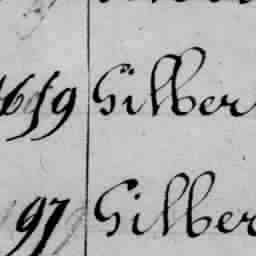 1659 Gilber
97 Gilber